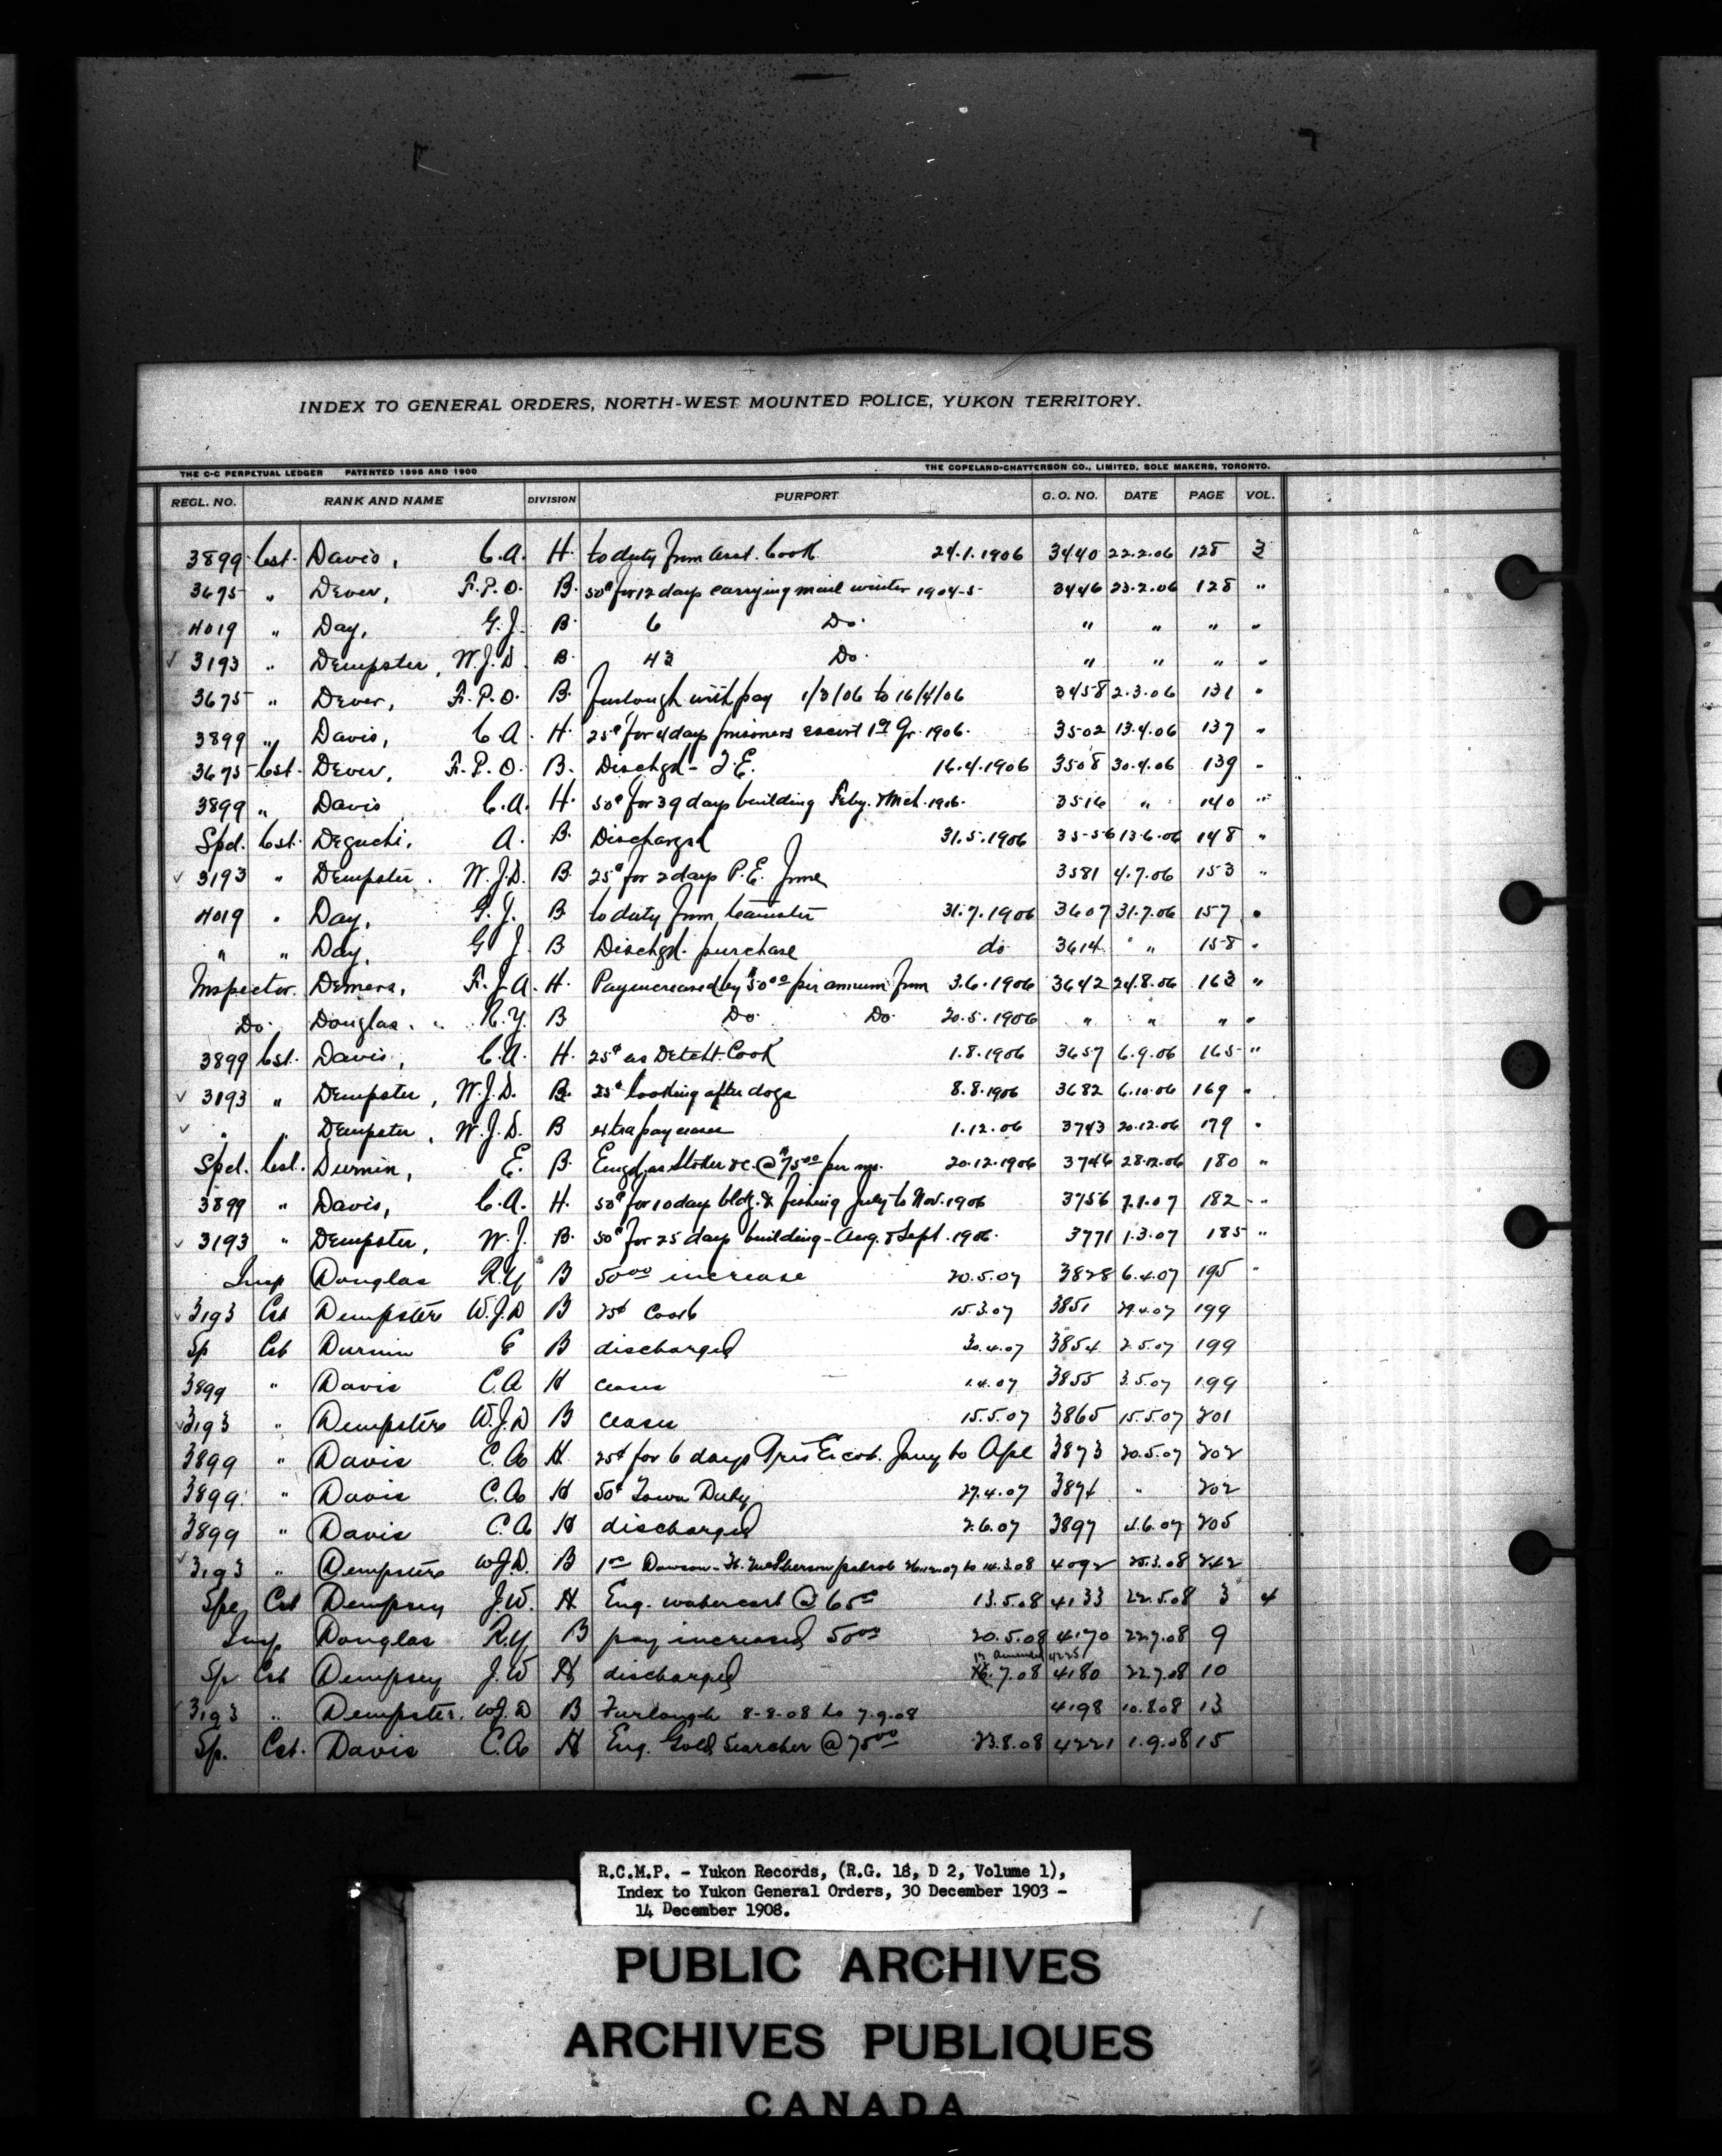 INDEX TO GENERAL ORDERS, NORTH-WEST MOUNTED POLICE, YUKON TERRITORY.
THE C-C PERPETUAL LEDGER PATENTED 1898 AND 1900 THE COPELAND-CHATTERSON CO., LIMITED, SOLE MAKERS, TORONTO.
REGL. NO. RANK AND NAME DIVISION PURPORT G.O. NO. DATE PAGE VOL.
3899 Cst. Davis, C.A. H. to duty from Asst. Cook 24.1.1906 3440 22.2.06 128 3
3675 " Dever, F.P.O. B. 50¢ for 12 days carrying mail winter 1904-5 3446 23.2.06 128 "
4019 " Day, G.J. B. 6 Do. " " " "
✓ 3193 " Dempster, W.J.D. B. 43 Do. " " " "
3675 " Dever, F.P.O. B. Furlough with pay 1/3/06 to 16/4/06 3458 2.3.06 131 "
3899 " Davis, C.A. H. 25¢ for 4 days prisoners escort 1st Qr. 1906. 3502 13.4.06 137 "
3675 Cst. Dever, F.P.O. B. Dischgd - T.E. 16.4.1906 3508 30.4.06 139 "
3899 " Davis C.A. H. 50¢ for 39 days building Feby. & Mch. 1906. 3516 " 140 "
Spcl. Cst. Deguchi, A. B. Discharged 31.5.1906 3556 13.6.06 148 "
✓ 3193 " Dempster. W.J.D. B. 25¢ for 2 days P.E. June 3581 4.7.06 153 "
4019 " Day, G.J. B to duty from teamster 31.7.1906 3607 31.7.06 157 "
" " Day, G J. B Dischgd. purchase do 3614 " " 158 "
Inspector. Demers, F.J.A. H. Pay increased by $50.00 per annum from 3.6.1906 3642 24.8.06 163 "
Do. Douglas. R.Y. B Do. Do. 20.5.1906 " " " "
3899 Cst. Davis, C.A. H. 25¢ as Detcht. Cook 1.8.1906 3657 6.9.06 165 "
✓ 3193 " Dempster, W.J.D. B. 25¢ looking after dogs 8.8.1906 3682 6.10.06 169 "
✓ " " Dempster, W.J.D. B extra pay ceases 1.12.06 3743 20.12.06 179 "
Spcl. Cst. Durnin, E. B. Engd. as Stoker &c. @ $75.00 per mo. 20.12.1906 3746 28.12.06 180 "
3899 " Davis, C.A. H. 50¢ for 10 days bldg. & fishing July to Nov. 1906 3756 7.1.07 182 "
✓ 3193 " Dempster, W.J. B. 50¢ for 25 days building - Aug. & Sept. 1906. 3771 1.3.07 185 "
Insp Douglas R.Y B 50.00 increase 20.5.07 3828 6.4.07 195 "
✓ 3193 Cst Dempster W.J.D B 25¢ Cook 15.3.07 3851 29.4.07 199
Sp Cst Durnin E B discharged 30.4.07 3854 2.5.07 199
3899 " Davis C.A H ceases 1.4.07 3855 3.5.07 199
✓ 3193 " Dempster W.J.D B ceases 15.5.07 3865 15.5.07 201
3899 " Davis C.A H 25¢ for 6 days Pris Escot. Jany to Apl 3873 20.5.07 202
3899 " Davis C.A H 50¢ Town Duty 27.4.07 3874 " 202
3899 " Davis C.A H discharged 2.6.07 3897 4.6.07 205
✓ 3193 " Dempster W.J.D. B 1.00 Dawson - Ft. McPherson patrol 26.12.07 to 14.3.08 4092 25.3.08 242
Spe Cst Dempsey J.W. H Eng. watercart @ 65.00 13.5.08 4133 22.5.08 3 4
Insp Douglas R.Y B pay increased 50.00 20.5.08 4170 22.7.08 9
Sp Cst Dempsey J.W H discharged 16.7.08 4180 22.7.08 10
amended 4225
✓ 3193 " Dempster. W.J.D B Furlough 8-8-08 to 7.9.08 4198 10.8.08 13
Sp. Cst. Davis C.A H Eng. Gold Searcher @ 75.00 23.8.08 4221 1.9.08 15
R.C.M.P. - Yukon Records, (R.G. 18, D 2, Volume 1),
Index to Yukon General Orders, 30 December 1903 -
14 December 1908.
PUBLIC ARCHIVES
ARCHIVES PUBLIQUES
CANADA